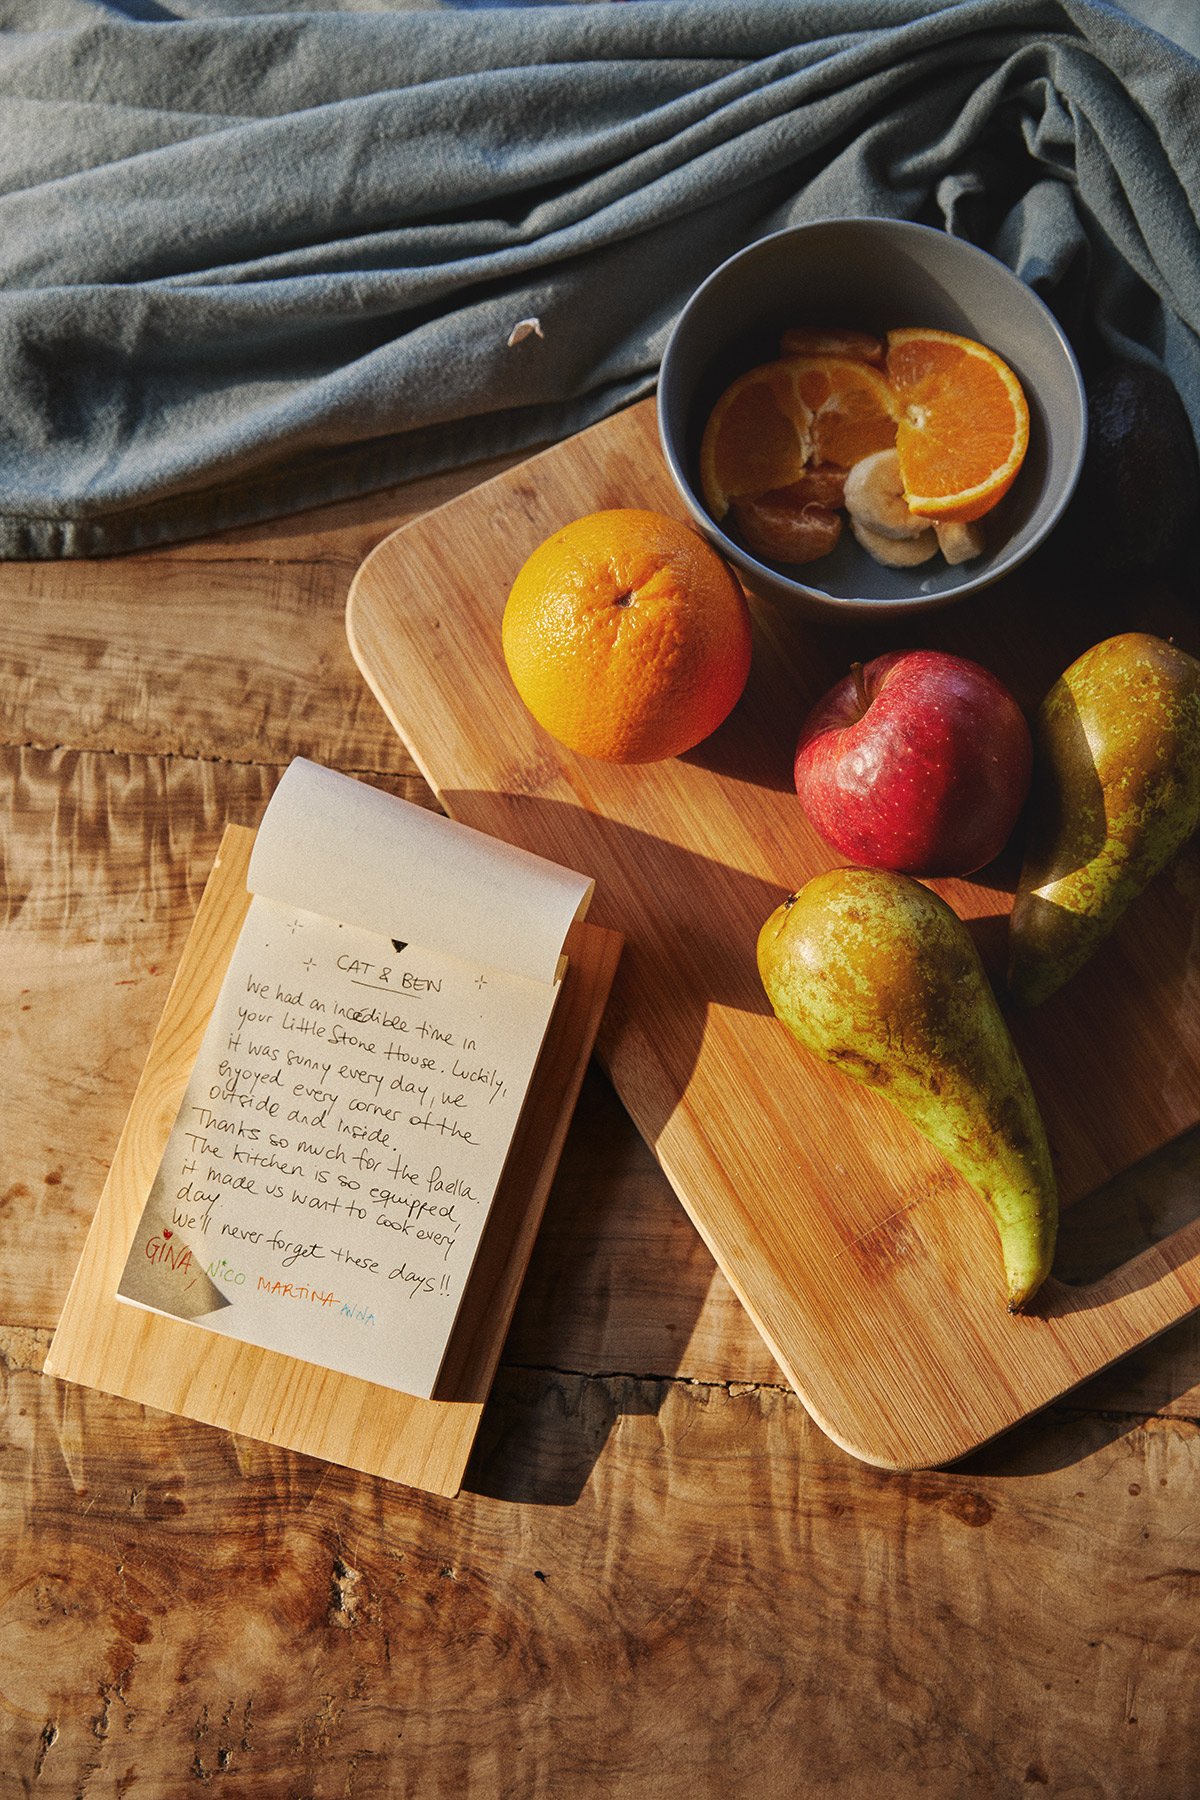 CAT & BEN
We had an incedible time in
your Little Stone House. Luckily,
it was sunny every day, we
enjoyed every corner of the
outside and inside.
Thanks so much for the Paella.
The kitchen is so equipped,
it made us want to cook every
day
We'll never forget these days!!
GINA, NICO MARTINA ANNA